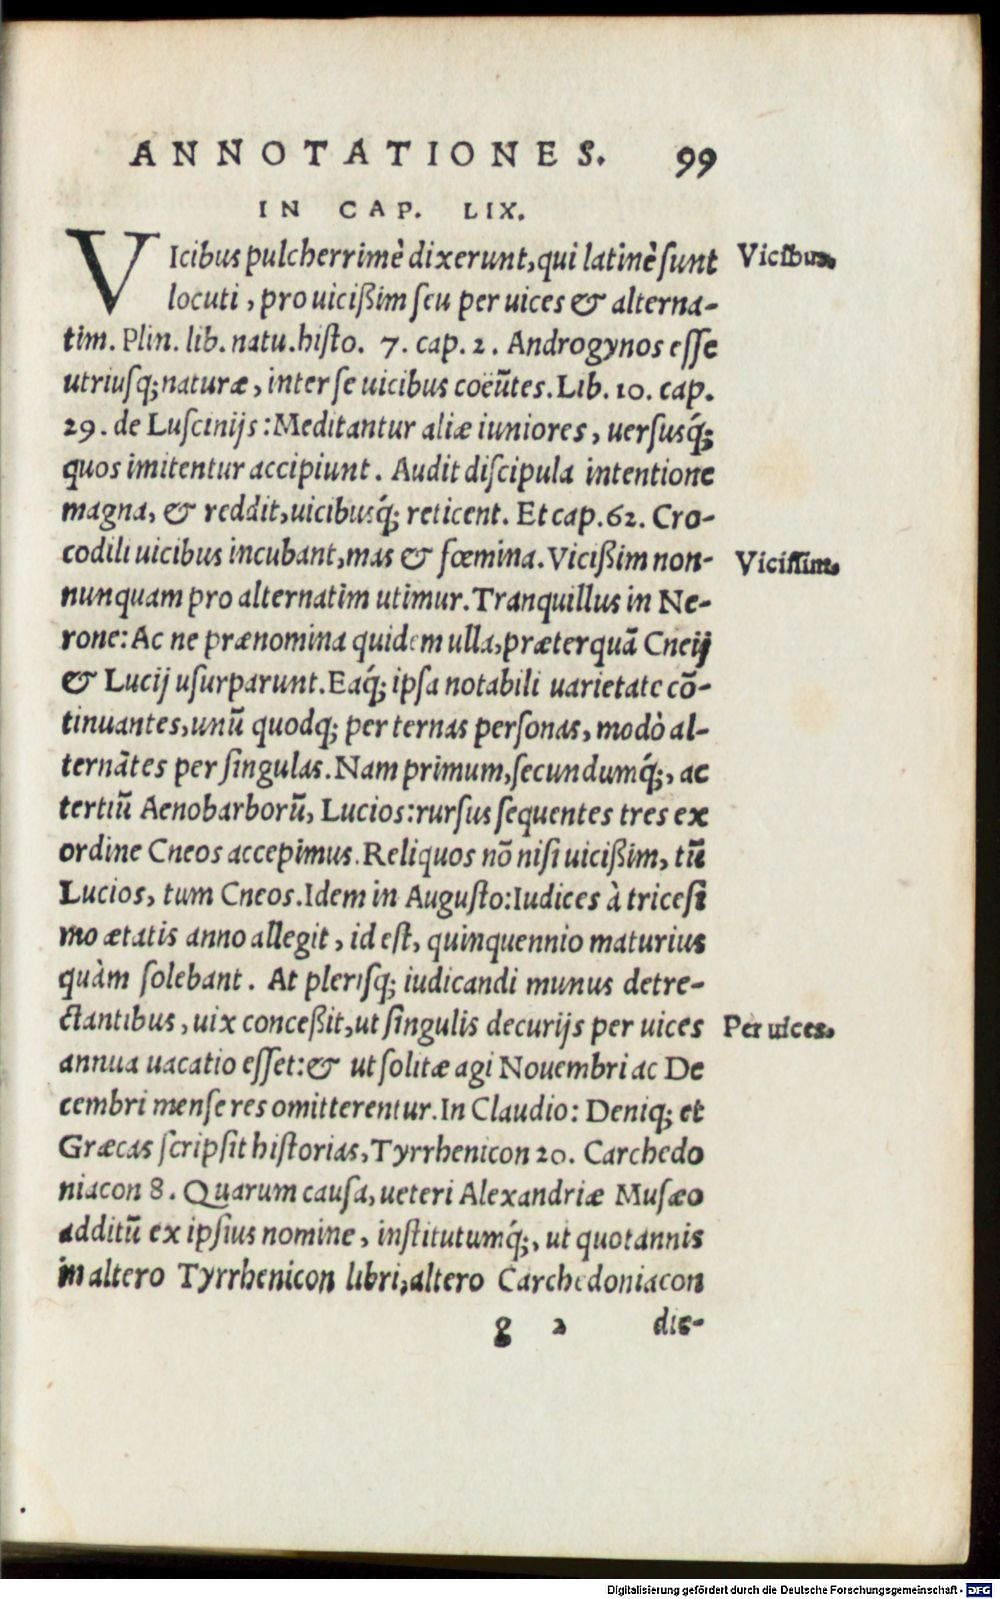 ANNOTATIONES. 99
IN CAP. LIX.
VIcibus pulcherrimè dixerunt, qui latinè sunt Vicibus.
locuti, pro uicißim seu per uices & alterna-
tim. Plin. lib. natu. histo. 7. cap. 2. Androgynos esse
utriusq; naturæ, inter se uicibus coëũtes. Lib. 10. cap.
29. de Luscinijs: Meditantur aliæ iuniores, uersusq́;
quos imitentur accipiunt. Audit discipula intentione
magna, & reddit, uicibusq́; reticent. Et cap. 62. Cro-
codili uicibus incubant, mas & fœmina. Vicißim non- Vicissim.
nunquam pro alternatim utimur. Tranquillus in Ne-
rone: Ac ne prænomina quidem ulla, præterquã Cneij
& Lucij usurparunt. Eaq́; ipsa notabili uarietate cõ-
tinuantes, unũ quodq; per ternas personas, modò al-
ternãtes per singulas. Nam primum, secundumq́;, ac
tertiũ Aenobarborũ, Lucios: rursus sequentes tres ex
ordine Cneos accepimus. Reliquos nõ nisi uicißim, tũ
Lucios, tum Cneos. Idem in Augusto: Iudices à tricesi
mo ætatis anno allegit, id est, quinquennio maturius
quàm solebant. At plerisq; iudicandi munus detre-
ctantibus, uix conceßit, ut singulis decurijs per uices Per uices.
annua uacatio esset: & ut solitæ agi Nouembri ac De
cembri mense res omitterentur. In Claudio: Deniq; et
Græcas scripsit historias, Tyrrhenicon 20. Carchedo
niacon 8. Quarum causa, ueteri Alexandriæ Musæo
additũ ex ipsius nomine, institutumq́;, ut quotannis
in altero Tyrrhenicon libri, altero Carchedoniacon
g 2 dis-
Digitalisierung gefördert durch die Deutsche Forschungsgemeinschaft - DFG